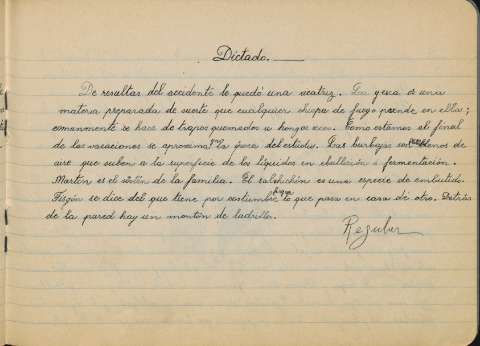 Dictado.
De resultas del accidente le quedó una cicatriz. La yesca es una
materia preparada de suerte que cualquier chispa de fuego prende en ella;
comunmente se hace de trapos quemados u hongos secos. Como estamos al final
de las vacaciones se aproxima la época del estudio. Las burbujas son llenas de
aire que suben a la superficie de los líquidos en ebullición o fermentación.
Martín es el sostén de la familia. El salchichón es una especie de embutido.
Fisgón se dice del que tiene por costumbre lo que pasa en casa de otro. Detrás
de la pared hay un montón de ladrillo.
Regular